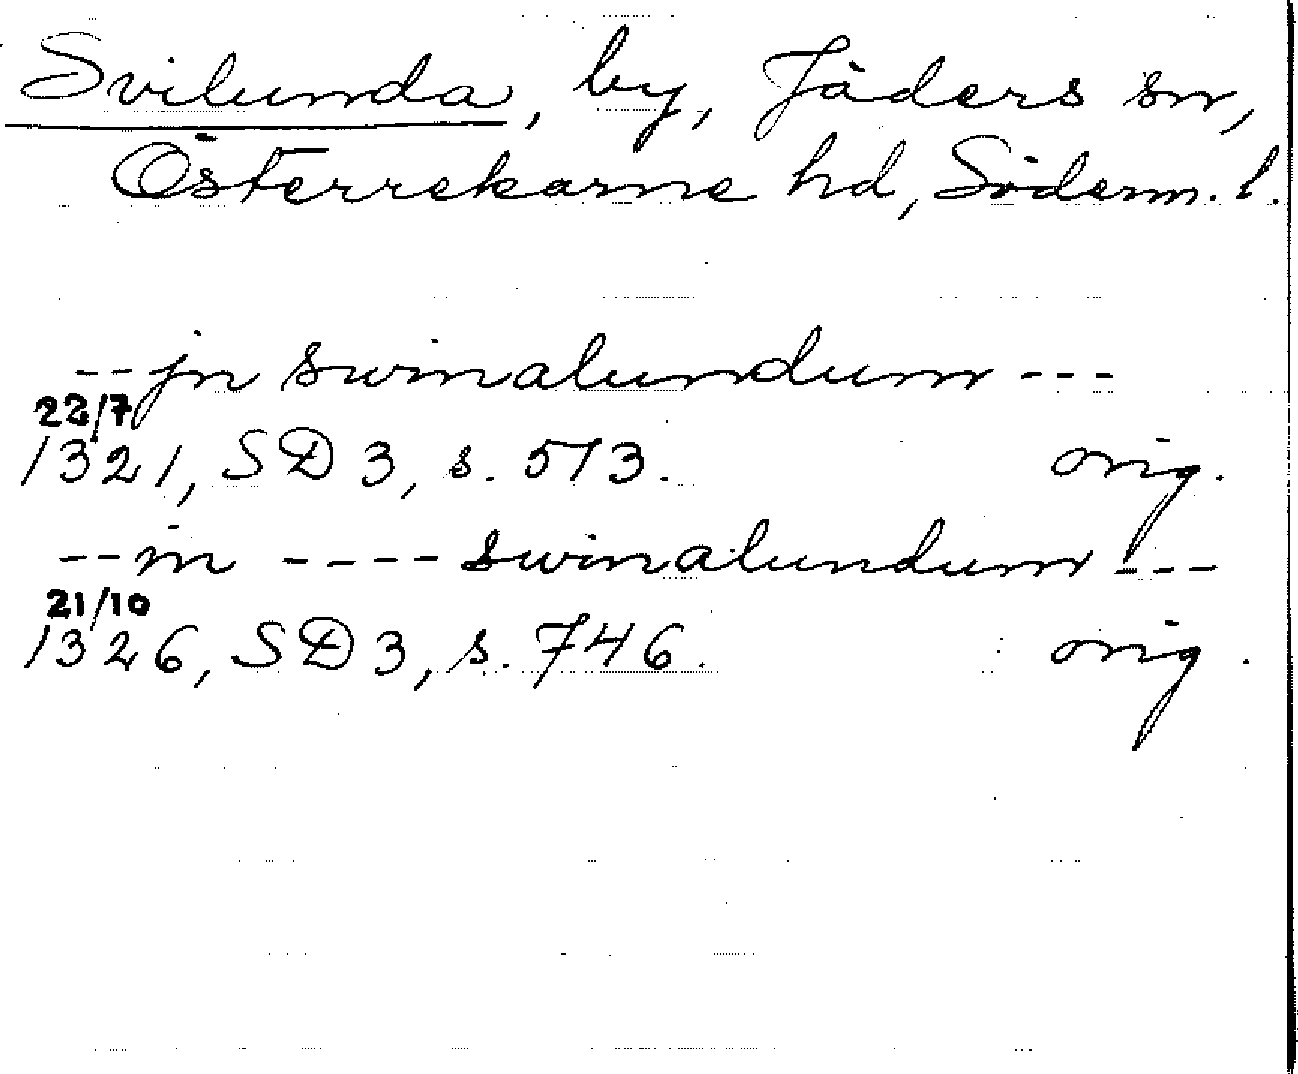 Svilunda, by, Jäders sn,
Österrekarne hd, Söderm. l.
--jn swinalundum ---
22/7
1321, SD 3, s. 513. orig.
--in ---- swinalundum ---
21/10
1326, SD 3, s. 746. orig.